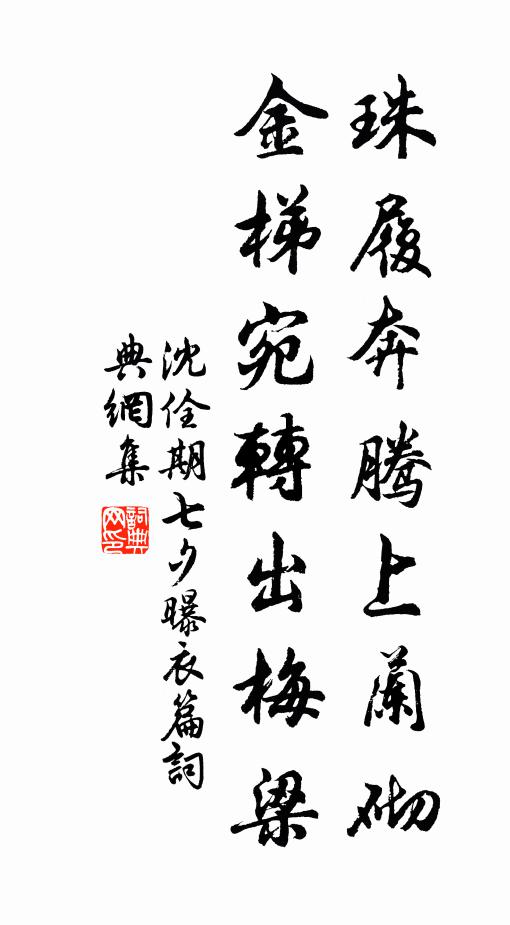 珠履奔騰上蘭砌
金梯宛轉出梅梁
沈佺期七夕曝衣篇詞
典網集
詞典
网印